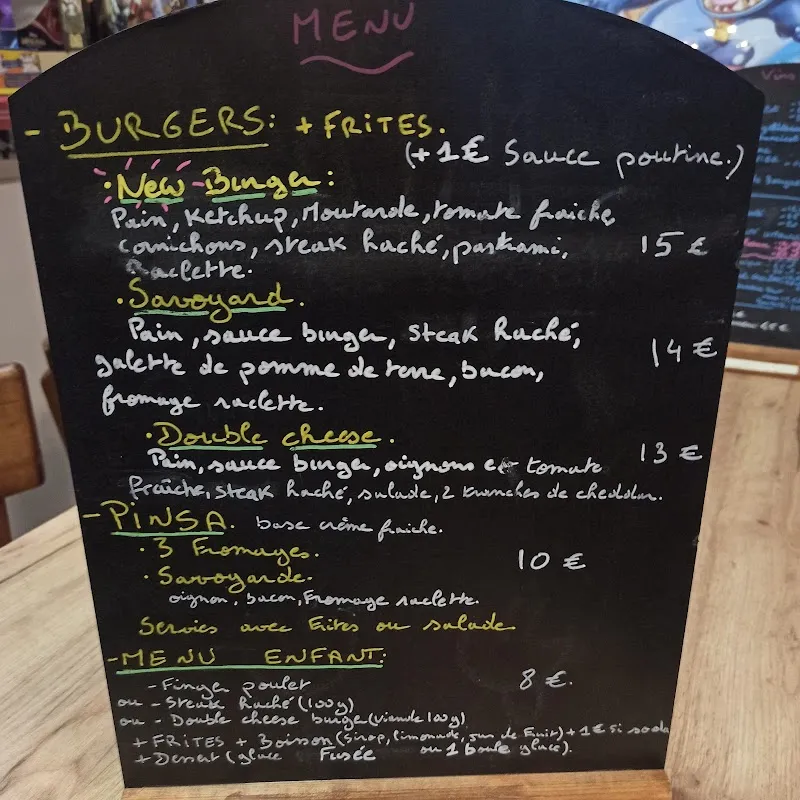 MENU
- BURGERS: + FRITES.
(+1€ Sauce poutine.)
• New Burger:
Pain, Ketchup, Moutarde, tomate fraiche,
cornichons, steak haché, pastrami, 15 €
Raclette.
• Savoyard.
Pain, sauce burger, steak haché,
galette de pomme de terre, bacon, 14 €
fromage raclette.
• Double cheese.
Pain, sauce burger, oignons et tomate 13 €
fraîche, steak haché, salade, 2 tranches de cheddar.
- PINSA. base crème fraiche.
• 3 Fromages. 10 €
• Savoyarde.
oignon, bacon, Fromage raclette.
Servies avec Frites ou salade
- MENU ENFANT:
- Finger poulet 8 €.
ou - Steak haché (100g)
ou - Double cheese burger (viande 100g)
+ FRITES + Boisson (Sirop, limonade, Jus de Fruit) + 1€ si soda
+ Dessert (glace Fusée ou 1 boule glace).
Vins